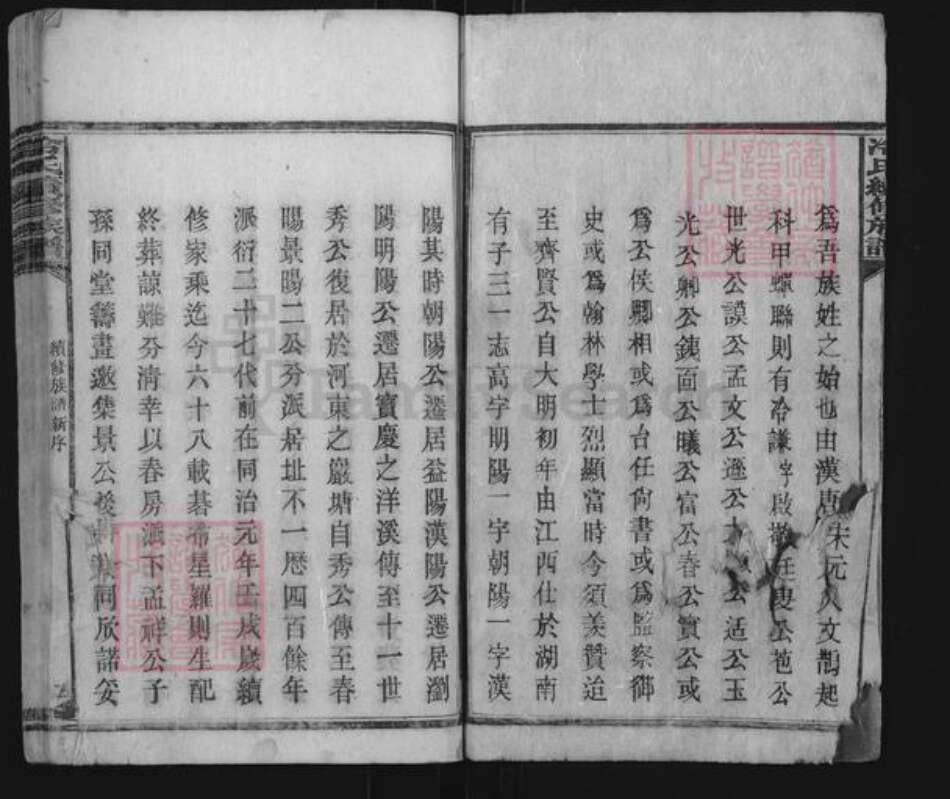 冷氏續修族譜
為吾族姓之始也由漢唐宋元人文鵲起
科甲蟬聯則有冷謙字啟敬廷叟公苞公
世光公謨公孟文公遜公才公适公玉
光公卿公銕面公曦公富公春公實公或
為公侯卿相或為台任尚書或為監察御
史或為翰林學士烈顯當時今須美贊迨
至齊賢公自大明初年由江西仕於湖南
有子三一志高字明陽一字朝陽一字漢
陽其時朝陽公遷居益陽漢陽公遷居瀏
陽明陽公遷居寶慶之洋溪傳至十一世
秀公復居於河東之巖塘自秀公傳至春
陽景陽二公分派居址不一歷四百餘年
派衍二十七代前在同治元年壬戌歲續
修家乘迄今六十八載碁布星羅則生配
終葬諒難分清幸以春房派下孟祥公子
孫同堂籌畫邀集景公後裔同欣諾妥
續修族譜新序